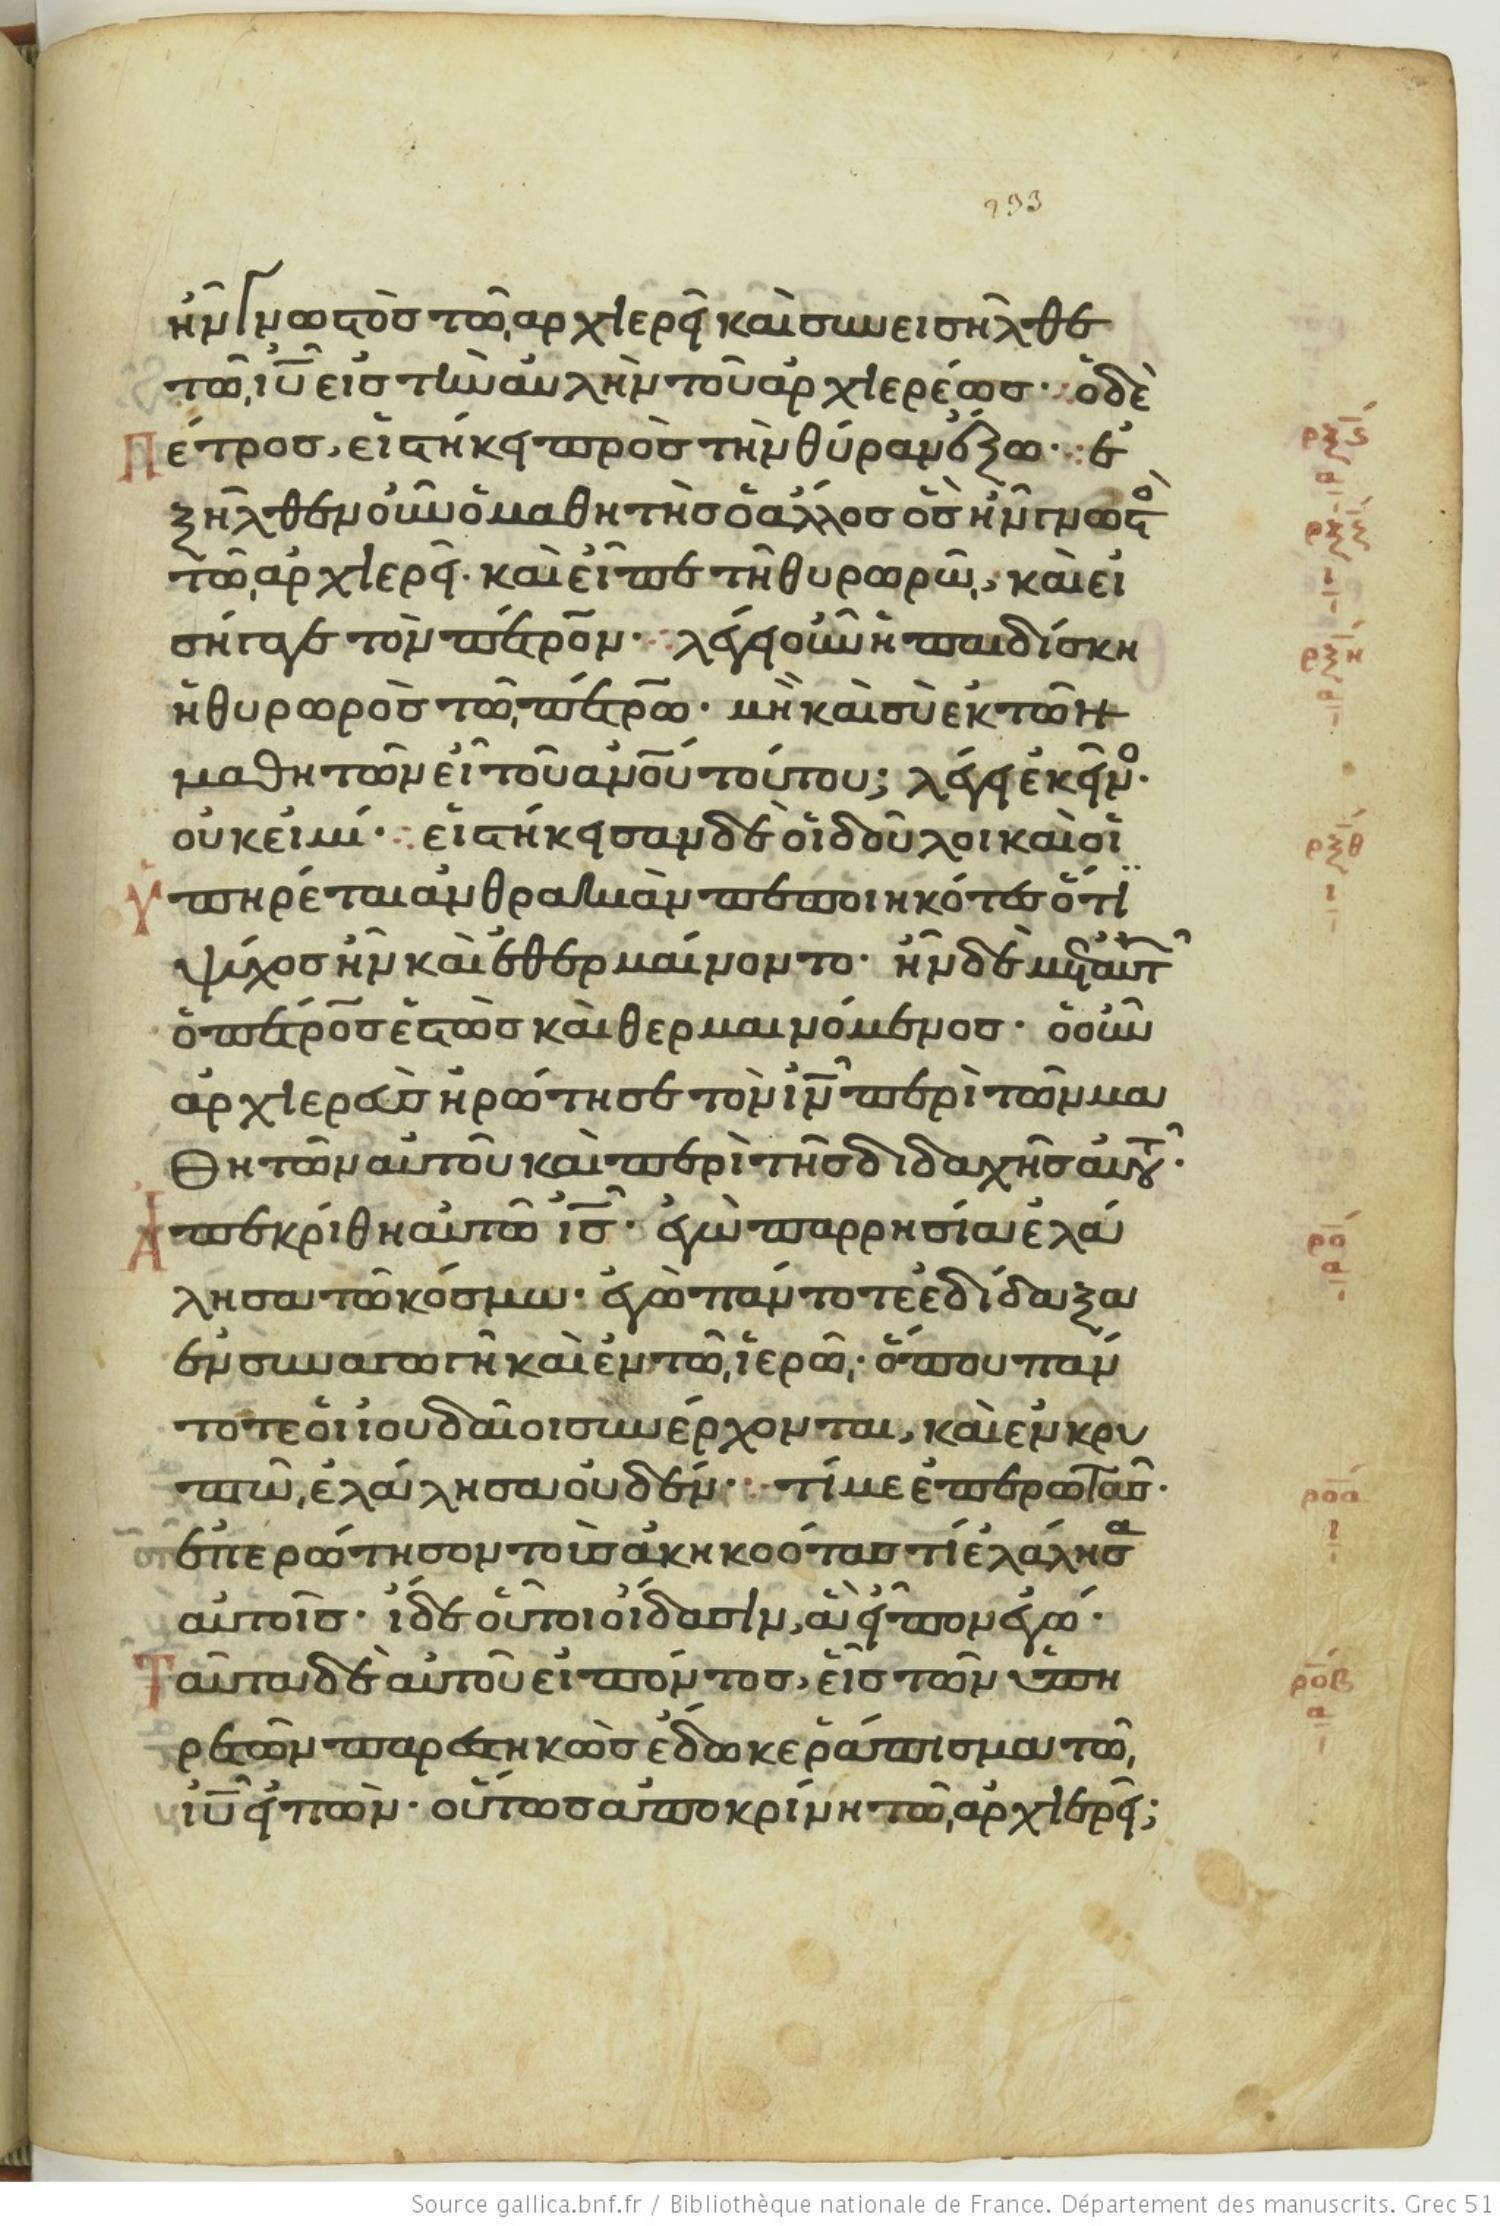 233
ἦν γνωστὸς τῶ, ἀρχιερεῖ καὶ συνεισῆλθε
τῶ, ιυ εἰς τὴν αὐλὴν τοῦ ἀρχιερέως· ὁ δὲ
Πέτρος, εἱστήκει πρὸς τὴν θύραν ἔξω· ἐ
ξῆλθεν οὖν ὁ μαθητὴς ὁ ἄλλος ὃς ἦν γνωστὸ
τῶ, ἀρχιερεῖ· καὶ εἶπε τῆ θυρωρῶ, καὶ εἰ
σήγαγε τὸν πέτρον· λέγει οὖν ἡ παιδίσκη
ἡ θυρωρὸς τῶ, πέτρω· μὴ καὶ σὺ ἐκ τῶν
μαθητῶν εἶ τοῦ ανου τούτου; λέγει ἐκεῖνο·
οὐκ εἰμί· εἱστήκεισαν δὲ οἱ δοῦλοι καὶ οἱ
ὑπηρέται ἀνθρακιὰν πεποιηκότες ὅτι
ψύχος ἦν καὶ ἐθερμαίνοντο· ἦν δὲ μετ αὐτ
ὁ πέτρος ἑστὼς καὶ θερμαινόμενος· ὁ οὖν
ἀρχιερεὺς ἠρώτησε τὸν ιν περὶ τῶν μα
θητῶν αὐτοῦ καὶ περὶ τῆς διδαχῆς αὐτοῦ·
Ἀπεκρίθη αὐτῶ ις· ἐγὼ παρρησία ἐλά
λησα τῶ κόσμω· ἐγὼ πάντοτε ἐδίδαξα
ἐν συναγωγῆ καὶ ἐν τῶ, ἱερῶ,· ὅπου πάν
τοτε οἱ ἰουδαῖοι συνέρχονται, καὶ ἐν κρυ
πτῶ, ἐλάλησα οὐδέν· τί με ἐπερωτᾶς·
ἐπερώτησον τοὺς ἀκηκοότας τί ἐλάλησα
αὐτοῖς· ἴδε οὗτοι οἴδασιν, ἃ εἶπον ἐγώ·
Ταῦτα δὲ αὐτοῦ εἰπόντος, εἷς τῶν ὑπη
ρετῶν παρεστηκὼς ἔδωκε ῥάπισμα τῶ,
ιυ εἰπών· οὕτως ἀποκρίνη τῶ, ἀρχιερεῖ;
ρξς
α
ρξζ
ι
ρξη
α
ρξθ
ι
ρο
α
ροα
ι
ροβ
α
Source gallica.bnf.fr / Bibliothèque nationale de France. Département des manuscrits. Grec 51